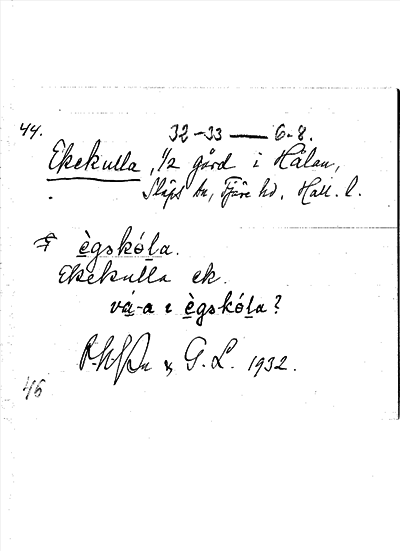 44. 32-33 — 6-8.
Ekekulla, 1/2 gård i Hålan,
Släps sn, Fjäre hd, Hall. l.
ègskóla.
Ekekulla ek.
vá-a ı ègskóla?
& G. L. 1932.
46